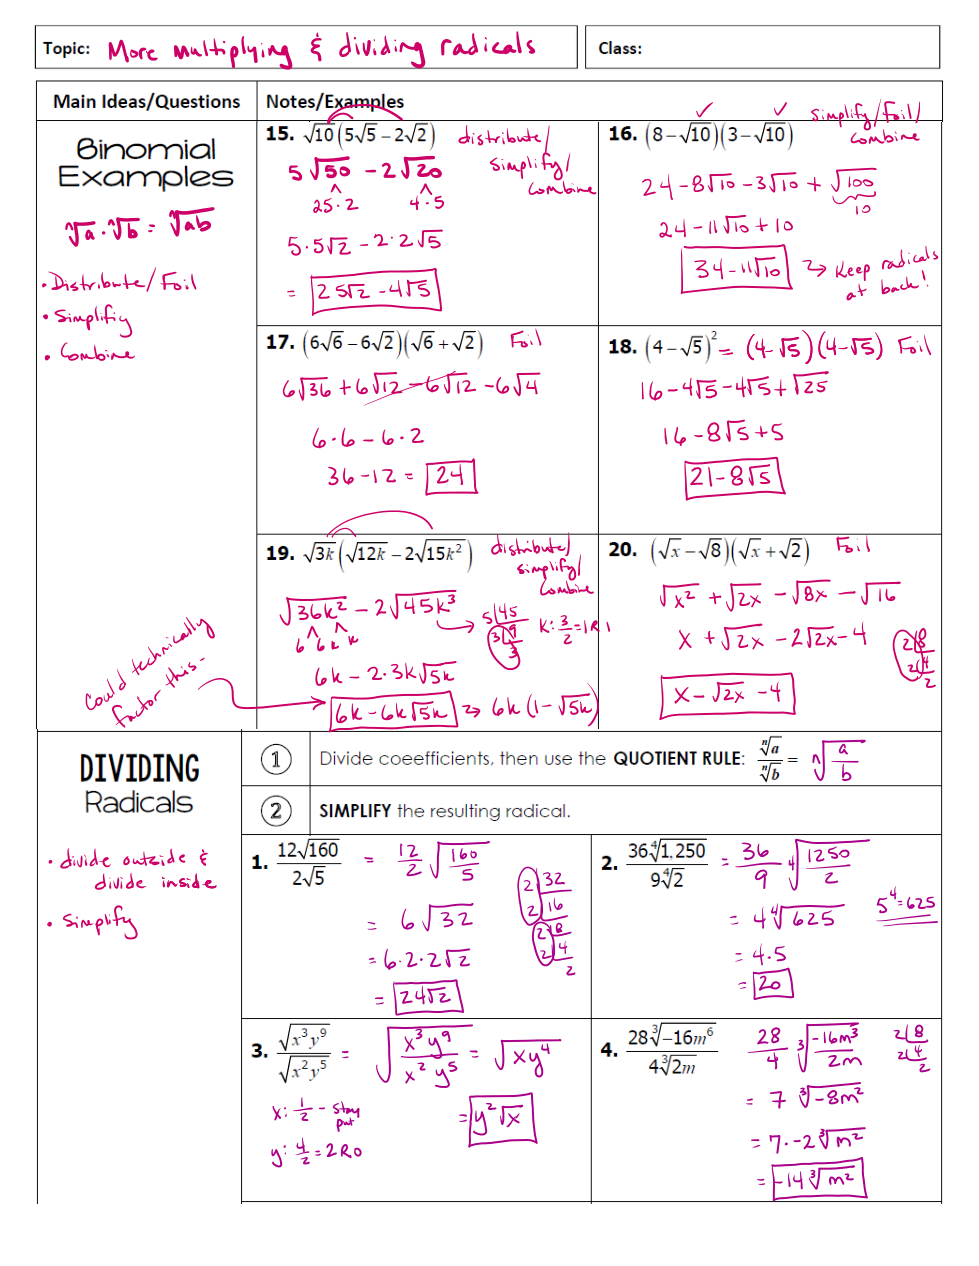 Topic: More multiplying & dividing radicals
Class:
Main Ideas/Questions
Notes/Examples
Binomial
Examples
ⁿ√a · ⁿ√b = ⁿ√ab
• Distribute/Foil
• Simplifiy
• Combine
15. √10(5√5 − 2√2)
distribute/
simplify/
combine
5√50 − 2√20
25·2 4·5
5·5√2 − 2·2√5
= 25√2 − 4√5
16. (8 − √10)(3 − √10)
✓ ✓
simplify/Foil/
combine
24 − 8√10 − 3√10 + √100
10
24 − 11√10 + 10
34 − 11√10
→ keep radicals
at back!
17. (6√6 − 6√2)(√6 + √2) Foil
6√36 + 6√12 − 6√12 − 6√4
6·6 − 6·2
36 − 12 = 24
18. (4 − √5)² = (4−√5)(4−√5) Foil
16 − 4√5 − 4√5 + √25
16 − 8√5 + 5
21 − 8√5
19. √3k(√12k − 2√15k²)
distribute/
simplify/
combine
√36k² − 2√45k³
6 6 k k
5|45
3|9
3
k: 3/2 = 1R1
6k − 2·3k√5k
6k − 6k√5k → 6k(1 − √5k)
Could technically
factor this -
20. (√x − √8)(√x + √2) Foil
√x² + √2x − √8x − √16
x + √2x − 2√2x − 4
2|8
2|4
2
x − √2x − 4
DIVIDING
Radicals
• divide outside &
divide inside
• Simplify
1 Divide coeefficients, then use the QUOTIENT RULE: ⁿ√a/ⁿ√b = ⁿ√(a/b)
2 SIMPLIFY the resulting radical.
1. 12√160/2√5 = 12/2 √(160/5)
= 6√32
= 6·2·2√2
= 24√2
2|32
2|16
2|8
2|4
2
2. 36⁴√1,250/9⁴√2 = 36/9 ⁴√(1250/2)
= 4⁴√625
5⁴=625
= 4·5
= 20
3. √x³y⁹/√x²y⁵ = √(x³y⁹/x²y⁵) = √xy⁴
x: 1/2 - stay
put
y: 4/2 = 2R0
= y²√x
4. 28³√−16m⁶/4³√2m
28/4 ³√(−16m³/2m)
2|8
2|4
2
= 7 ³√−8m²
= 7·−2³√m²
= −14³√m²